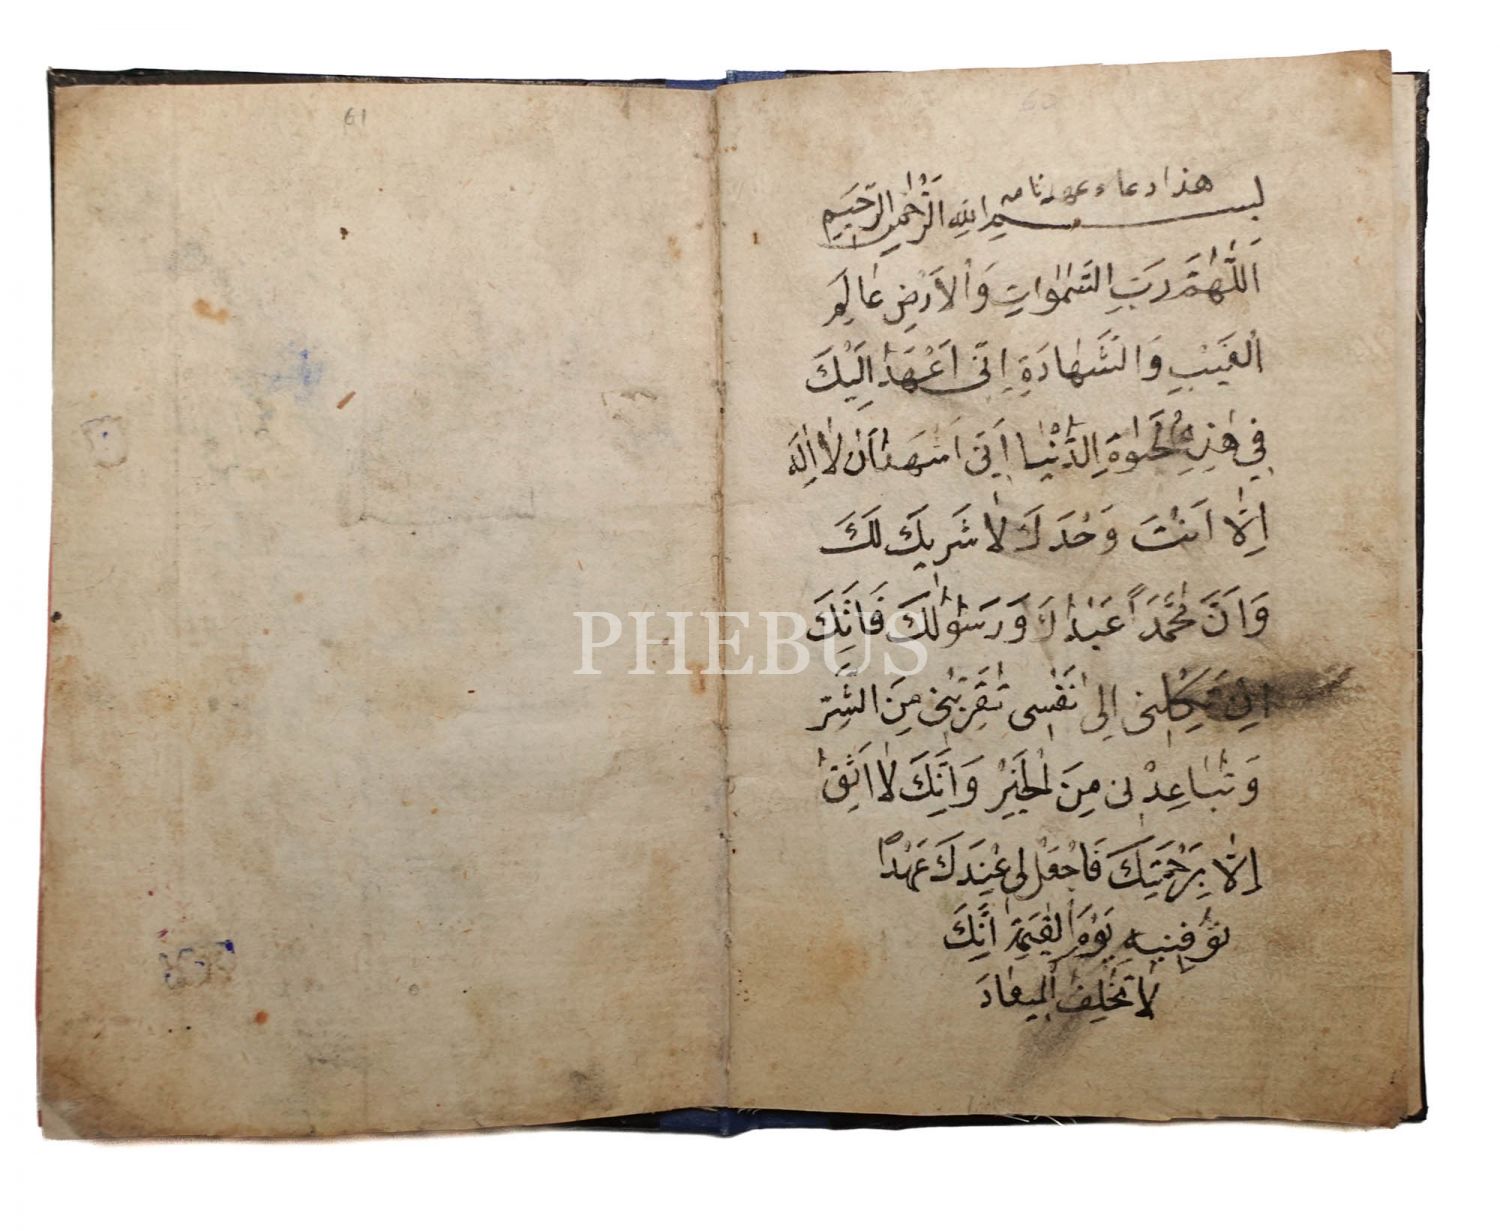 60
هذا دعاء عهدنامه
بسم الله الرَّحْمٰنِ الرَّحِيمِ
اَللّٰهُمَّ رَبَّ السَّمٰوَاتِ وَالْاَرْضِ عَالِمَ
الْغَيْبِ وَالشَّهَادَةِ اِنّٖى اَعْهَدُ اِلَيْكَ
فِي هٰذِهِ الْحَيٰوةِ الدُّنْيَا اِنّٖى اَشْهَدُ اَنْ لَا اِلٰهَ
اِلَّا اَنْتَ وَحْدَكَ لَا شَرِيكَ لَكَ
وَاَنَّ مُحَمَّدًا عَبْدُكَ وَرَسُولُكَ فَاِنَّكَ
اِنْ تَكِلْنِى اِلَى نَفْسِى تُقَرِّبْنِى مِنَ الشَّرِّ
وَتُبَاعِدْنِى مِنَ الْخَيْرِ وَاِنَّكَ لَا اَثِقُ
اِلَّا بِرَحْمَتِكَ فَاجْعَلْ لِى عِنْدَكَ عَهْدًا
تُوَفِّنِيهِ يَوْمَ الْقِيٰمَةِ اِنَّكَ
لَا تُخْلِفُ الْمِيعَادَ
61
PHEBUS